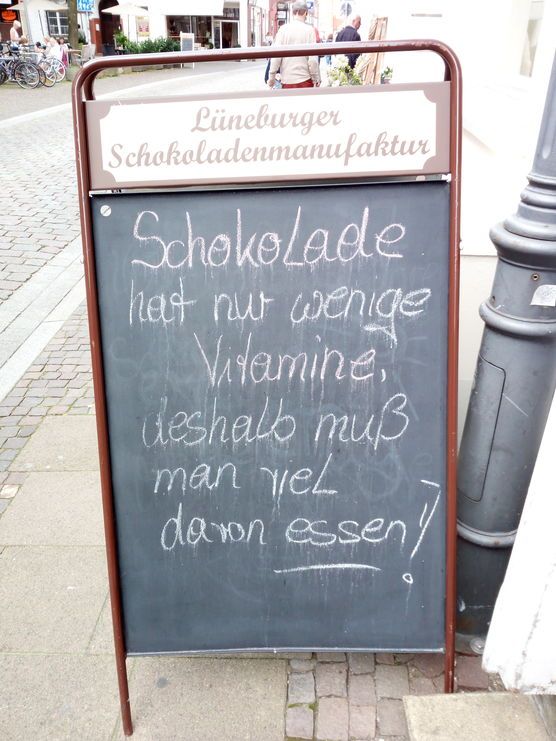 Lüneburger
Schokoladenmanufaktur
Schokolade
hat nur wenige
Vitamine,
deshalb muß
man viel
davon essen!